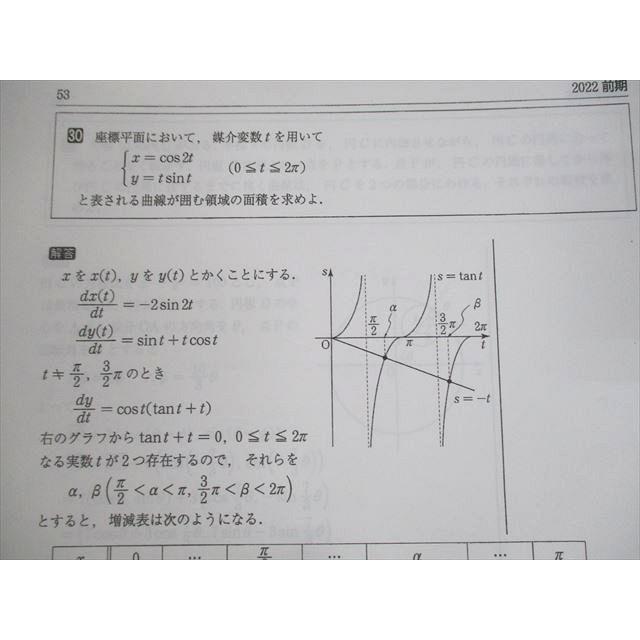 53
2022 前期
30 座標平面において，媒介変数 t を用いて
x = cos2t
y = t sint
(0≦t≦2π)
と表される曲線が囲む領域の面積を求めよ．
解答
x を x(t), y を y(t) とかくことにする．
dx(t)/dt = −2sin2t
dy(t)/dt = sint + t cost
t ≠ π/2, 3/2π のとき
dy/dt = cost(tant + t)
右のグラフから tant + t = 0, 0≦t≦2π
なる実数 t が2つ存在するので，それらを
α, β (π/2 < α < π, 3/2π < β < 2π)
とすると，増減表は次のようになる．
s
s = tant
α
β
π/2
3/2π
2π
O
π
t
s = −t
0 … π/2 … α … π